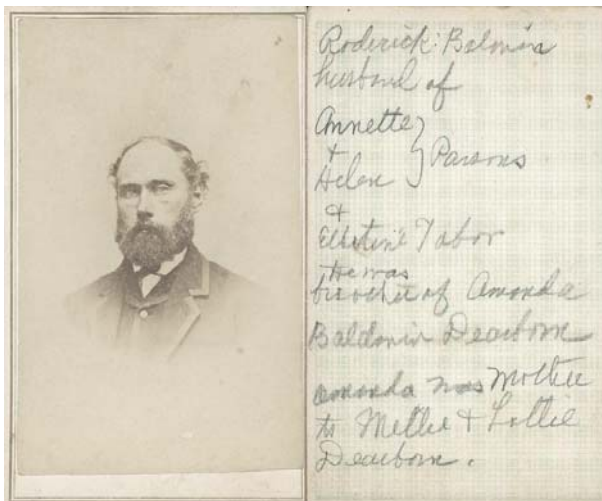 Roderick Baldwin
husband of
Annette
+ } Parsons
Helen
&
Tabor
He was
brother of Amanda
Baldwin Dearborn
Amanda was Mother
to Mellie + Lottie
Dearborn.